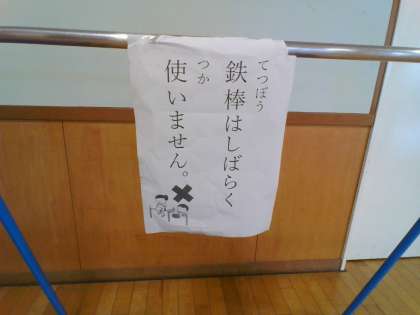 鉄棒はしばらく
てつぼう
使いません。
つか